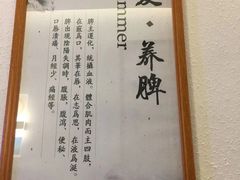 夏·养脾
mmer
脾主運化，統攝血液。體合肌肉而主四肢，
在竅爲口，其華在唇，在志爲思，在液爲涎。
脾出現陰陽失調時，腹脹、腹瀉、便秘、
口唇潰瘍、月經少、痛經等。